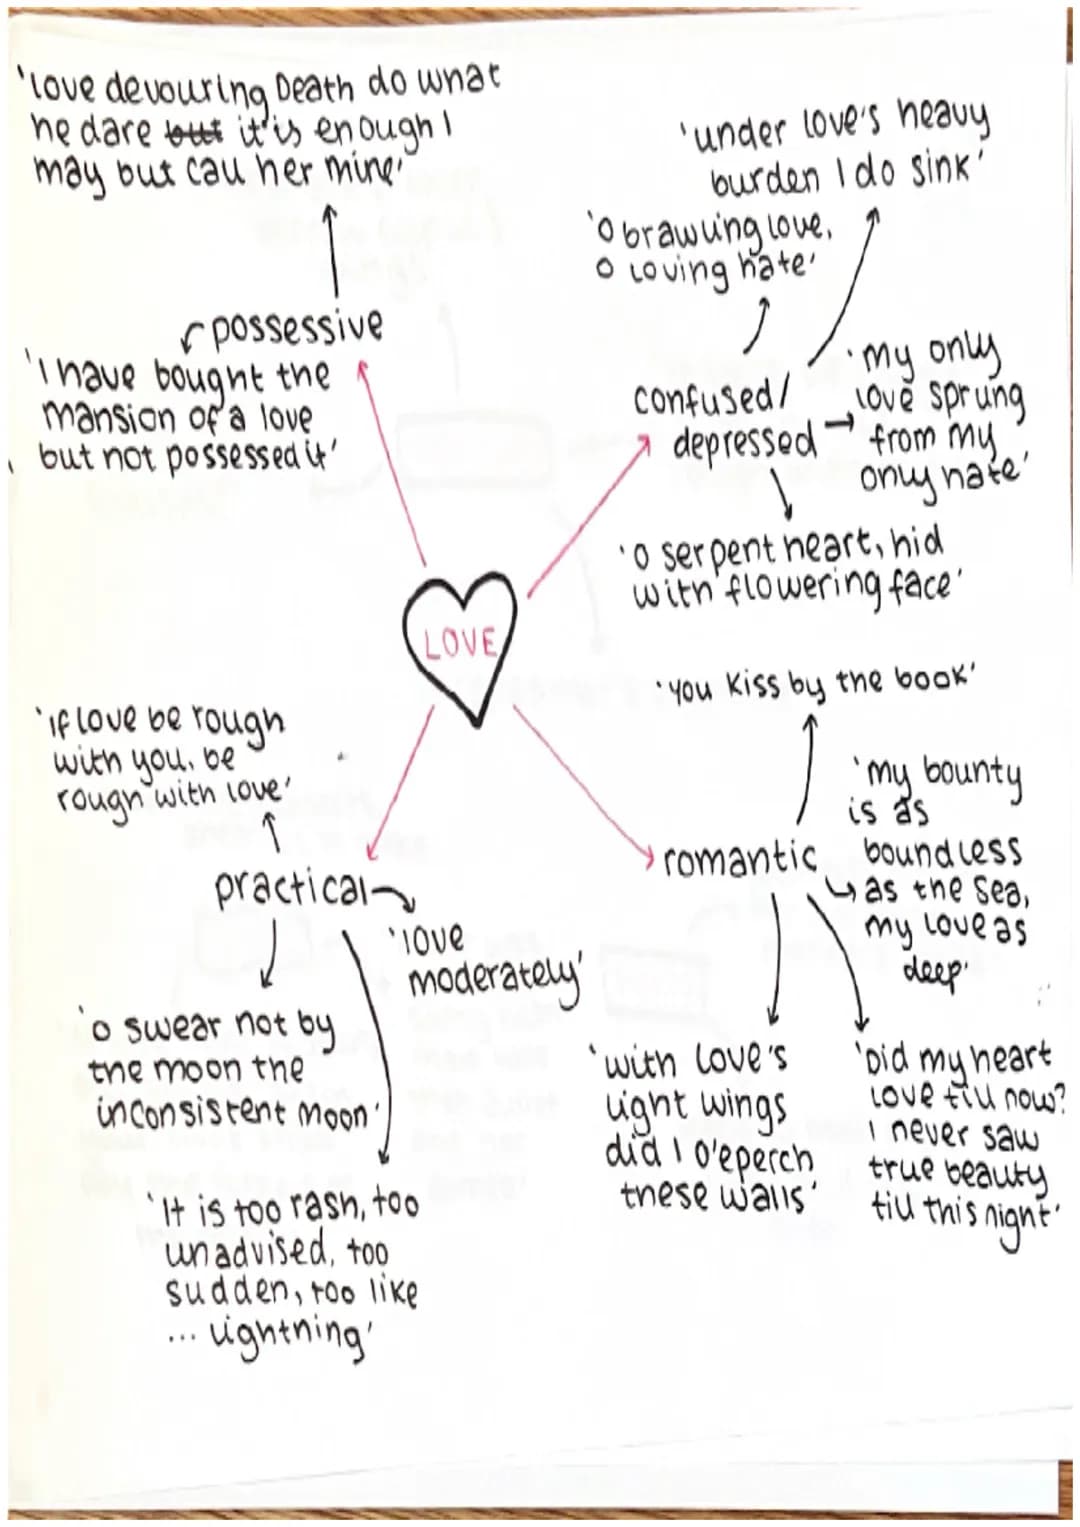 'love devouring Death do what
he dare but it is enough I
may but call her mine'
possessive
'I have bought the
mansion of a love
but not possessed it'
'under love's heavy
burden I do sink'
'O brawling love,
O loving hate'
confused/
depressed
'my only
love sprung
from my
only hate'
'O serpent heart, hid
with flowering face'
LOVE
'if love be rough
with you, be
rough with love'
practical
'love
moderately'
'O swear not by
the moon the
inconsistent moon'
'It is too rash, too
unadvised, too
sudden, too like
... lightning'
'you kiss by the book'
romantic
'my bounty
is as
boundless
as the sea,
my love as
deep'
'with love's
light wings
did I o'eperch
these walls'
'Did my heart
love till now?
I never saw
true beauty
till this night'